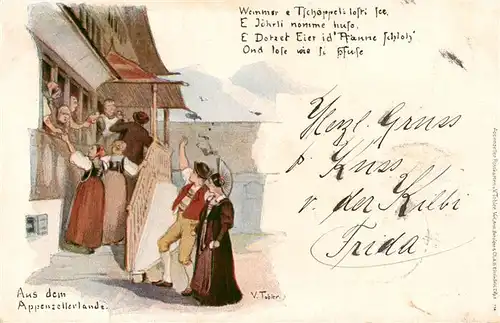 Wemmer e Tschöppeli losti see,
E Jöhrli nomme huso,
E Dotzet Eier id' Pfanne schloh'
Ond lose wie si pfuse
Herzl. Gruss
& Kuss
v. der Kilbi
Frida
Aus dem
Appenzellerlande.
V. Tobler.